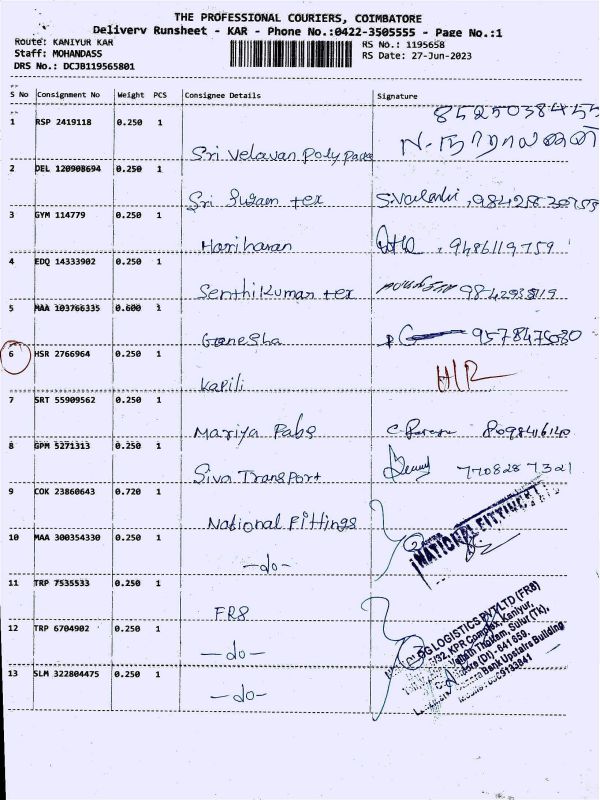 THE PROFESSIONAL COURIERS, COIMBATORE
Delivery Runsheet - KAR - Phone No.:0422-3505555 - Page No.:1
Route: KANIYUR KAR RS No.: 1195658
Staff: MOHANDASS RS Date: 27-Jun-2023
DRS No.: DCJB119565801
S No Consignment No Weight PCS Consignee Details Signature
8525038455
1 RSP 2419118 0.250 1
Sri Velavan Poly pack
2 DEL 120908694 0.250 1
Sri tex
3 GYM 114779 0.250 1
Hariharan 9486119759
4 EDQ 14333902 0.250 1
Senthilkumar tex
5 MAA 103766335 0.600 1
Ganesha 9578475080
6 HSR 2766964 0.250 1
Kapili
7 SRT 55909562 0.250 1
Mariya Fabs 8098416140
8 GPM 5271313 0.250 1
Siva Transport 7708287321
9 COK 23860643 0.720 1
National Fittings NATIONAL FITTING
10 MAA 300354330 0.250 1
-do-
11 TRP 7535533 0.250 1
FR8
LOGISTICS PVT LTD (FR8)
KPR Complex, Kaniyur,
12 TRP 6704902 0.250 1
-do-
Sulur (Tk),
(Dt) - 641 659.
Bank Upstairs Building
13 SLM 322804475 0.250 1
-do-